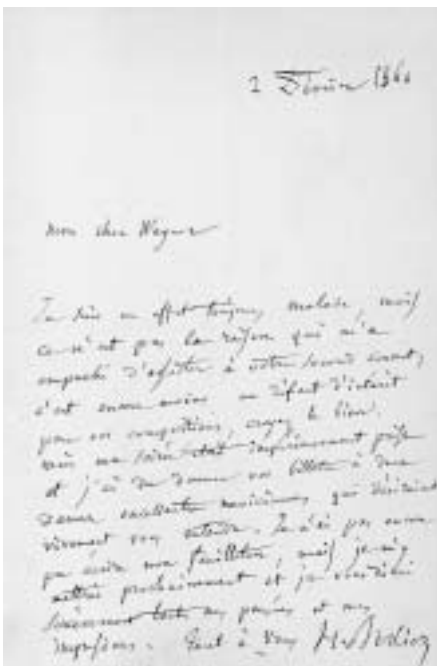 2 Février 1860
Mon cher Wagner
Je suis en effet toujours malade, mais
ce n'est pas la raison qui m'a
empêché d'assister à votre second concert,
c'est encore moins un défaut d'intérêt
pour vos compositions, croyez le bien.
mais ma soirée était impérieusement prise
et j'ai du donner vos billets à deux
dames excellentes musiciennes, qui désiraient
vivement vous entendre. Je n'ai pas encore
pu écrire mon feuilleton, mais je m'y
mettrai prochainement et je vous dirai
sincèrement toutes mes pensées et mes
impressions. Tout à vous H. Berlioz